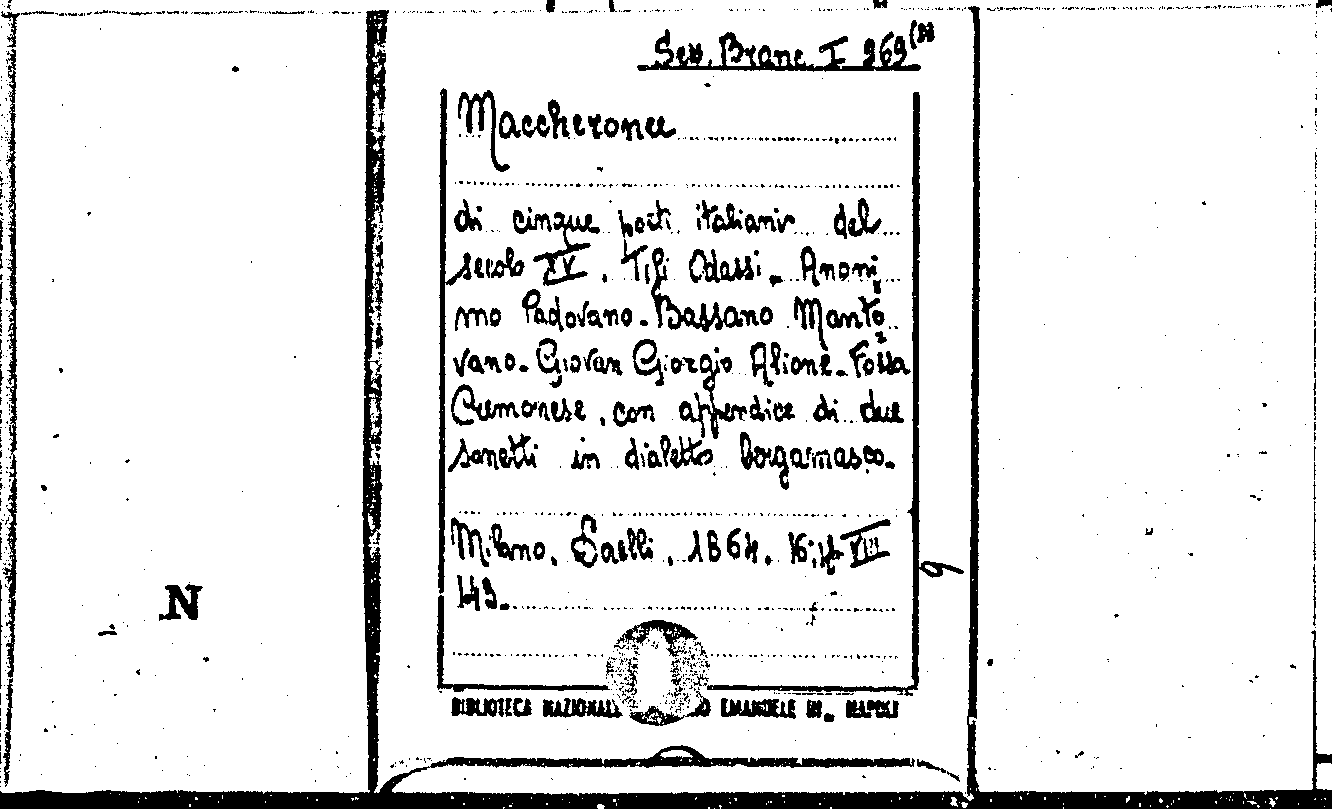 Sez. Branc. I 969
Maccheronee
di cinque poeti italiani del
secolo XV. Tifi Odassi - Anoni
mo Padovano - Bassano Manto
vano - Giovan Giorgio Alione - Fossa
Cremonese, con appendice di due
sonetti in dialetto borgamasco.
Milano, Daelli, 1864. 16, pp VIII
149.
9
N
BIBLIOTECA NAZIONALE EMANUELE III - NAPOLI